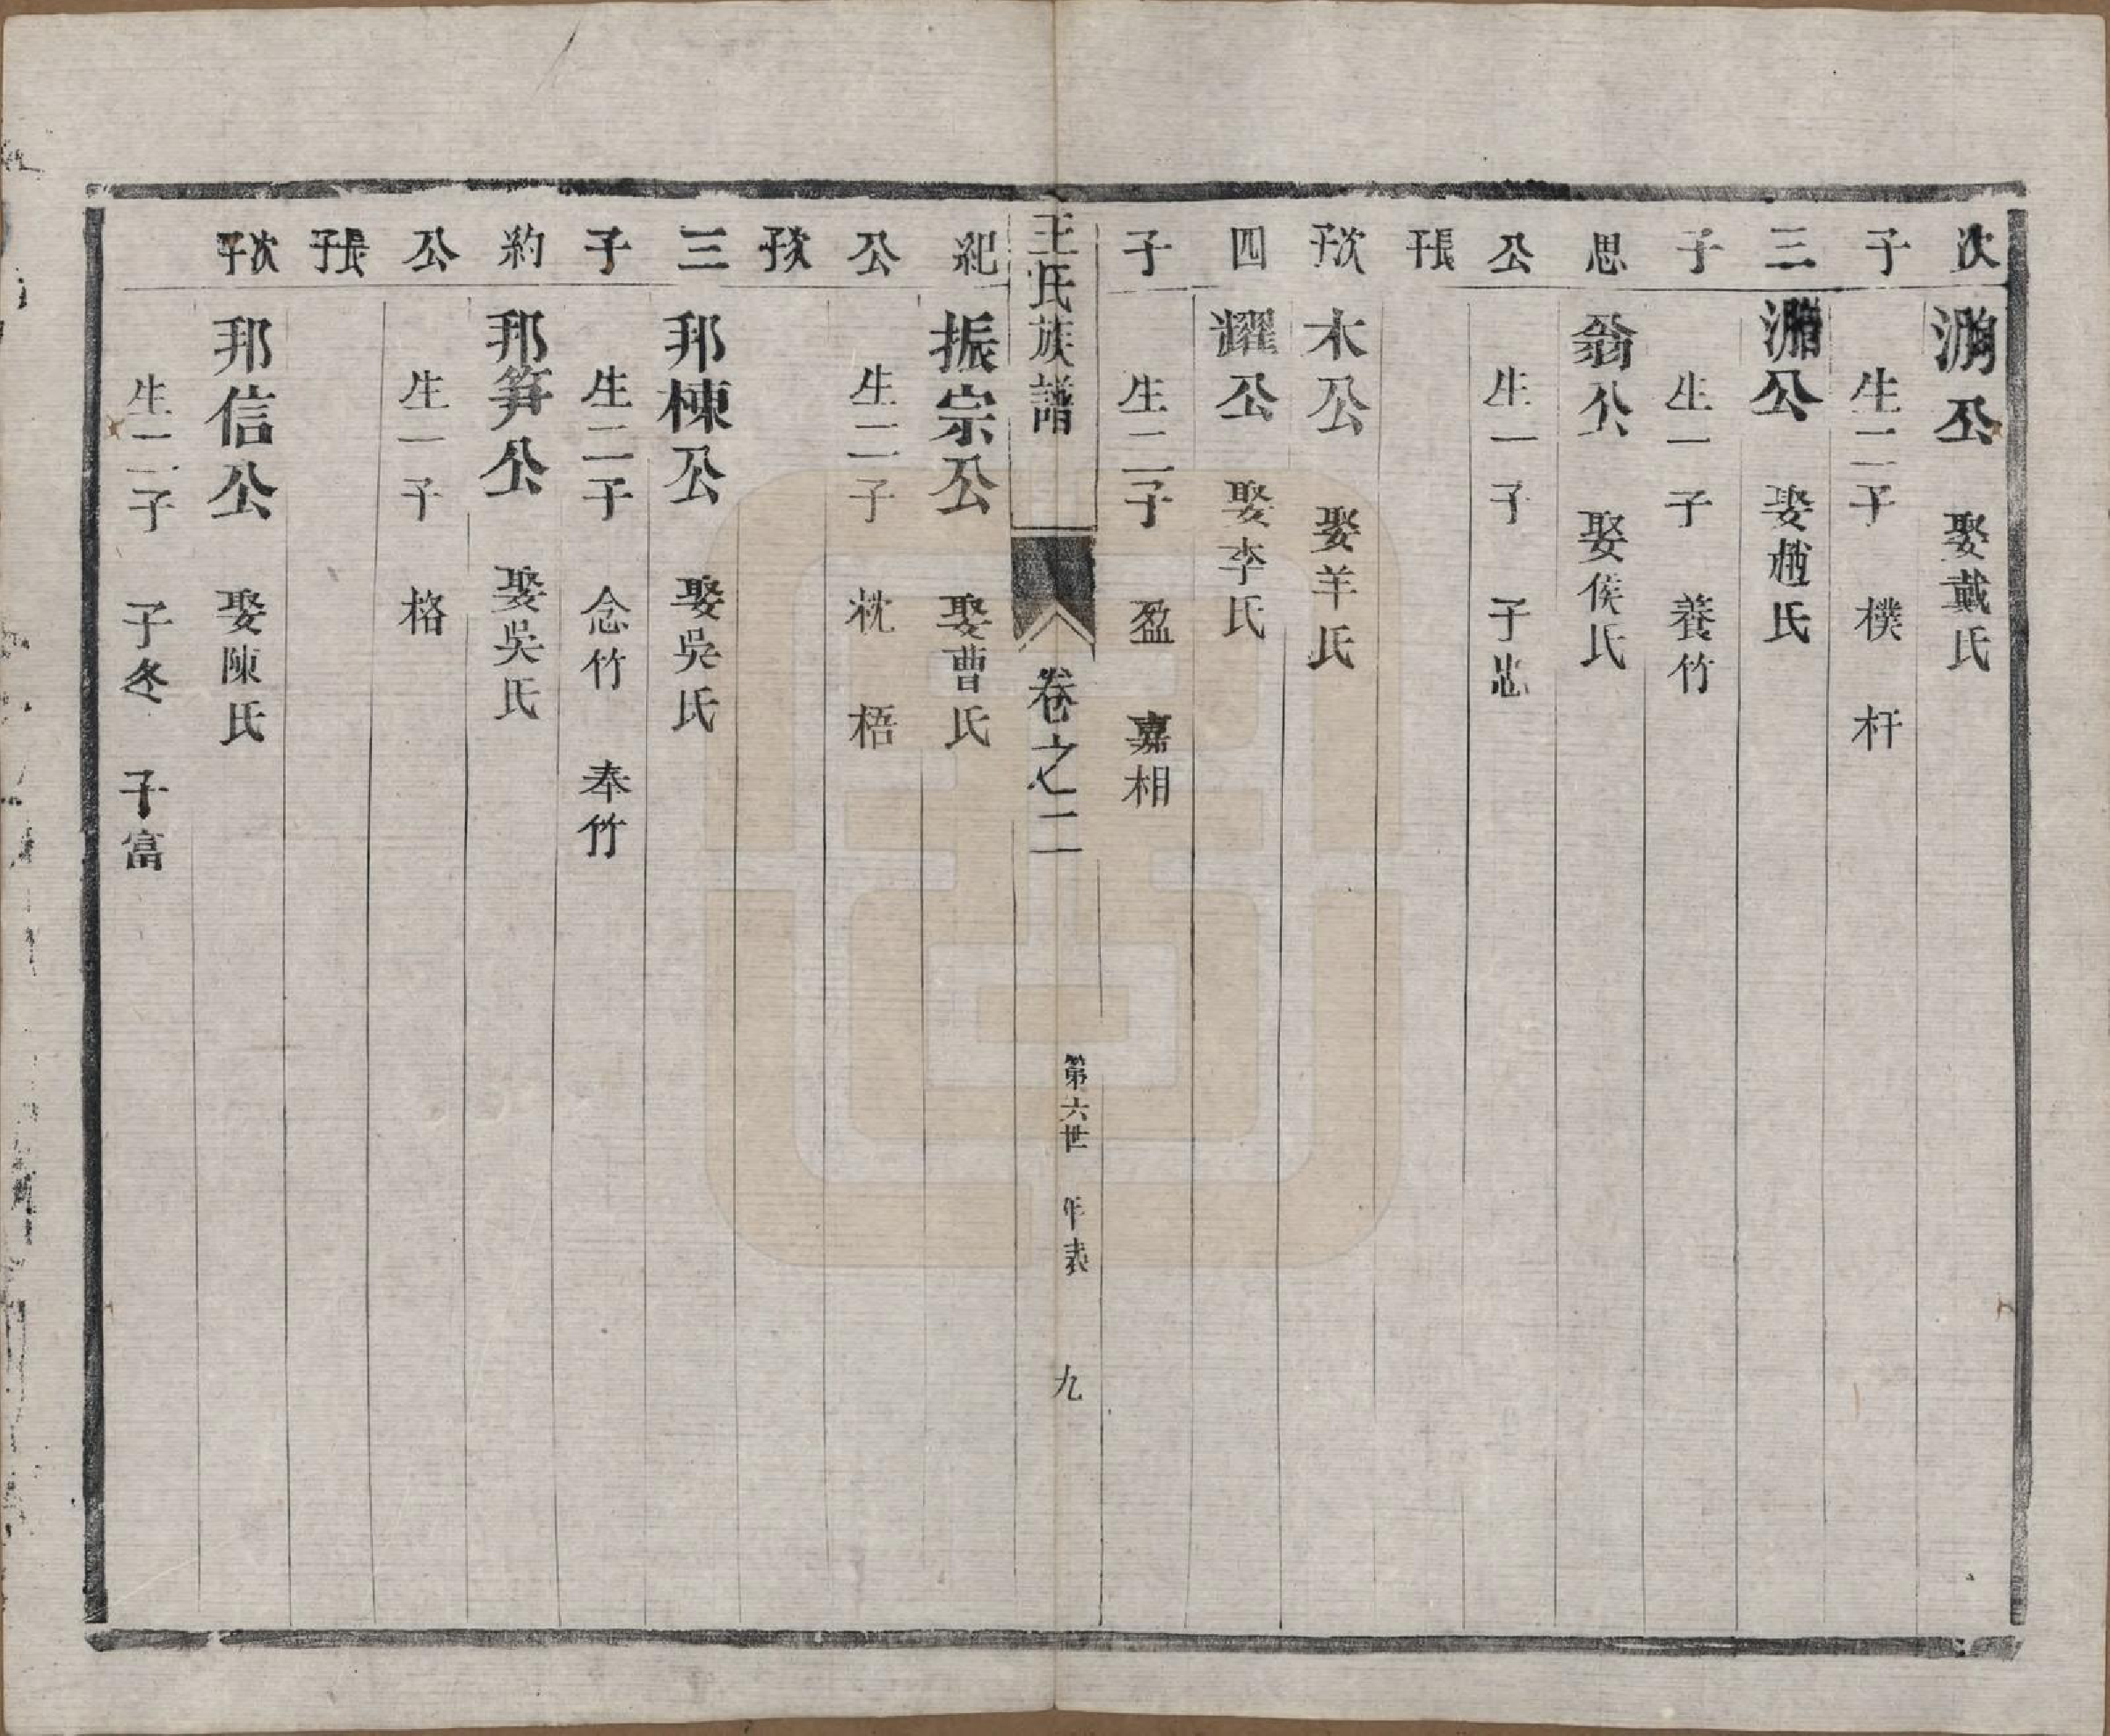 次　公　娶戴氏
子　生二子　樸　杆
三　公　娶趙氏
子　生一子　養竹
思　翁公　娶侯氏
公　生一子　子忠
長子
次子　木公　娶羊氏
四　耀公　娶李氏
子　生二子　盈　嘉相
王氏族譜　卷之二　第六世　年表　九
紀　振宗公　娶曹氏
公　生二子　枕　梧
次子
三　邦棟公　娶吳氏
子　生二子　念竹　奉竹
約　邦筭公　娶吳氏
公　生一子　格
長子
次子　邦信公　娶陳氏
生二子　子冬　子富